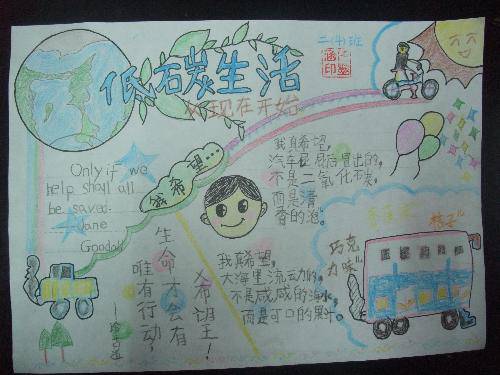 低碳生活
从现在开始
二(4)班
Only if we
help shall all
be saved.
Jane
Goodall
我希望…
我真希望,
汽车屁后冒出的,
不是二氧化碳,
而是清
香的泡。
我真希望,
大海里流动的,
不是咸咸的海水,
而是可口的果汁。
唯有行动,
生命才会有
希望!
桔子
巧克
力味